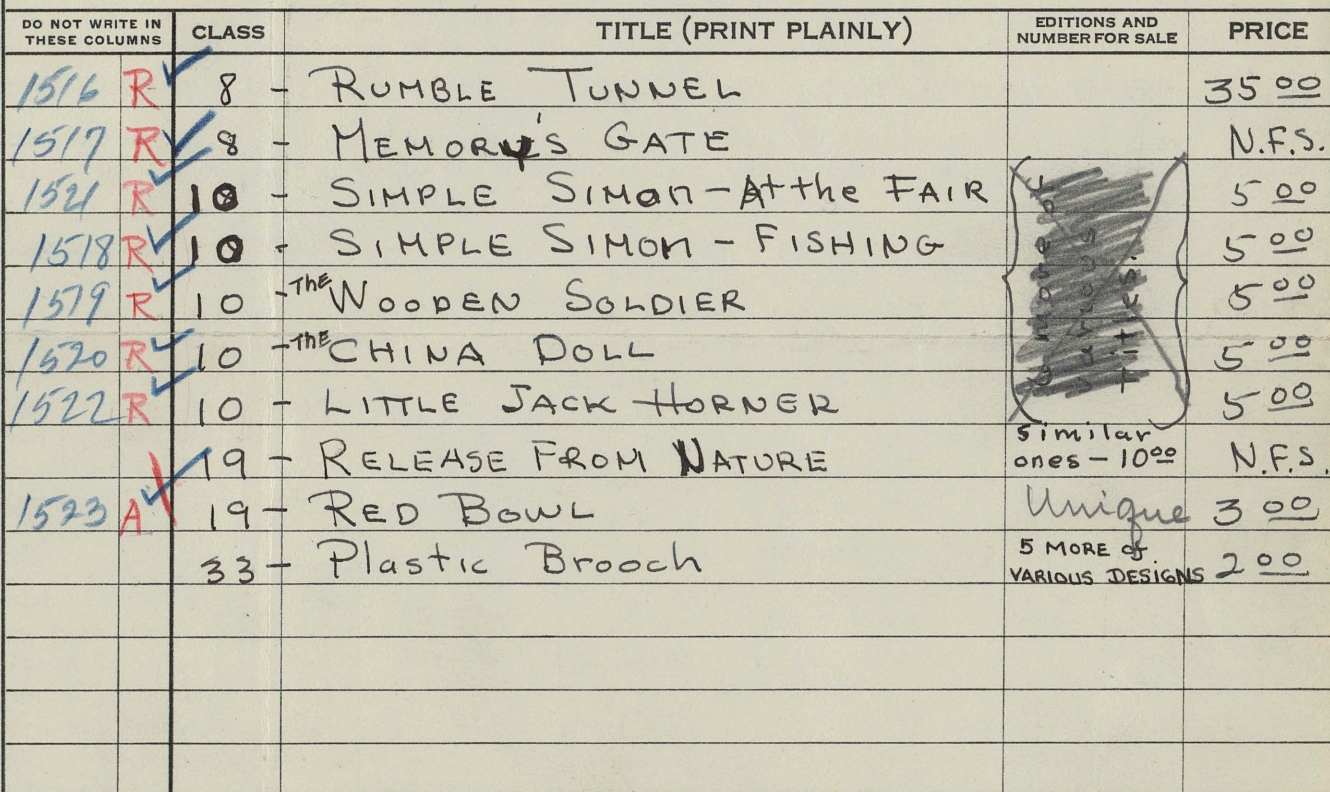 DO NOT WRITE IN THESE COLUMNS CLASS TITLE (PRINT PLAINLY) EDITIONS AND NUMBER FOR SALE PRICE
1516 R 8 - RUMBLE TUNNEL 35 00
1517 R 8 - MEMORY'S GATE N.F.S.
1521 R 10 - SIMPLE SIMON - At the FAIR 5 00
1518 R 10 - SIMPLE SIMON - FISHING 5 00
1519 R 10 - The WOODEN SOLDIER 5 00
1520 R 10 - The CHINA DOLL 5 00
1522 R 10 - LITTLE JACK HORNER 5 00
19 - RELEASE FROM NATURE similar ones - 10 00 N.F.S.
1523 A 19 - RED BOWL Unique 3 00
33 - Plastic Brooch 5 MORE of VARIOUS DESIGNS 2 00